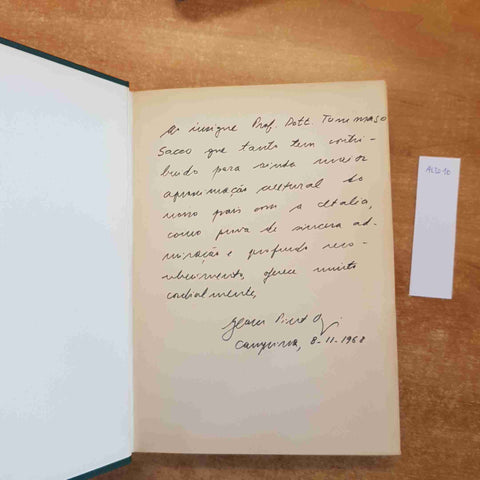 Ao insigne Prof. Dott. Tommaso
Sacco que tanto tem contri-
buido para ainda maior
aproximação cultural do
nosso país com a Italia,
como prova de sincera ad-
miração e profundo reco-
nhecimento, oferece muito
cordialmente,
Campinas, 8-11-1968